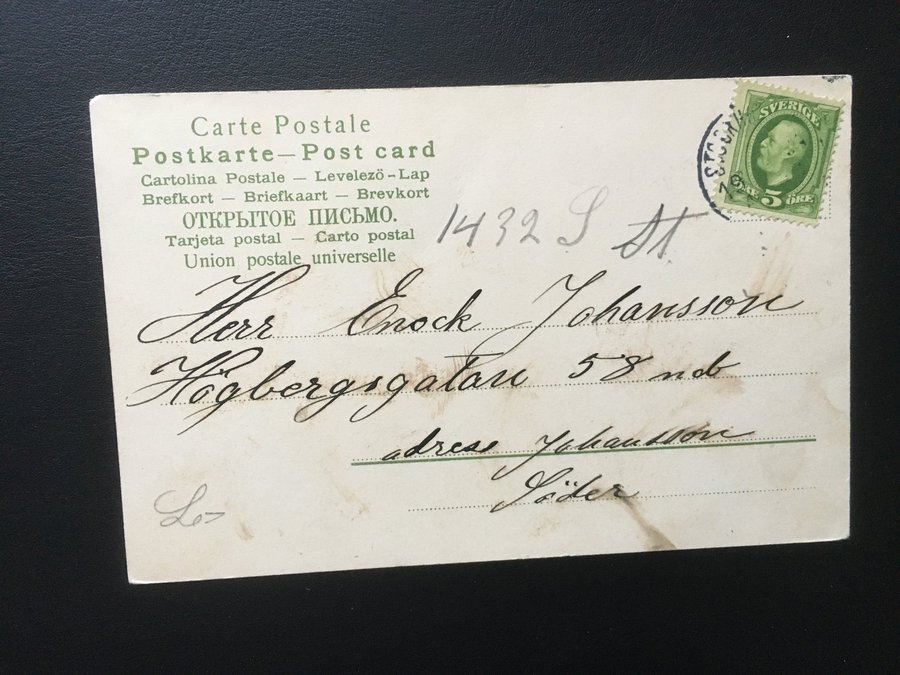 Carte Postale
Postkarte — Post card
Cartolina Postale — Levelezö-Lap
Brefkort — Briefkaart — Brevkort
ОТКРЫТОЕ ПИСЬМО.
Tarjeta postal — Carto postal
Union postale universelle
SVERIGE
5 ÖRE
1432 S St
Herr Enock Johansson
Högbergsgatan 58 nb
adress Johansson
Söder